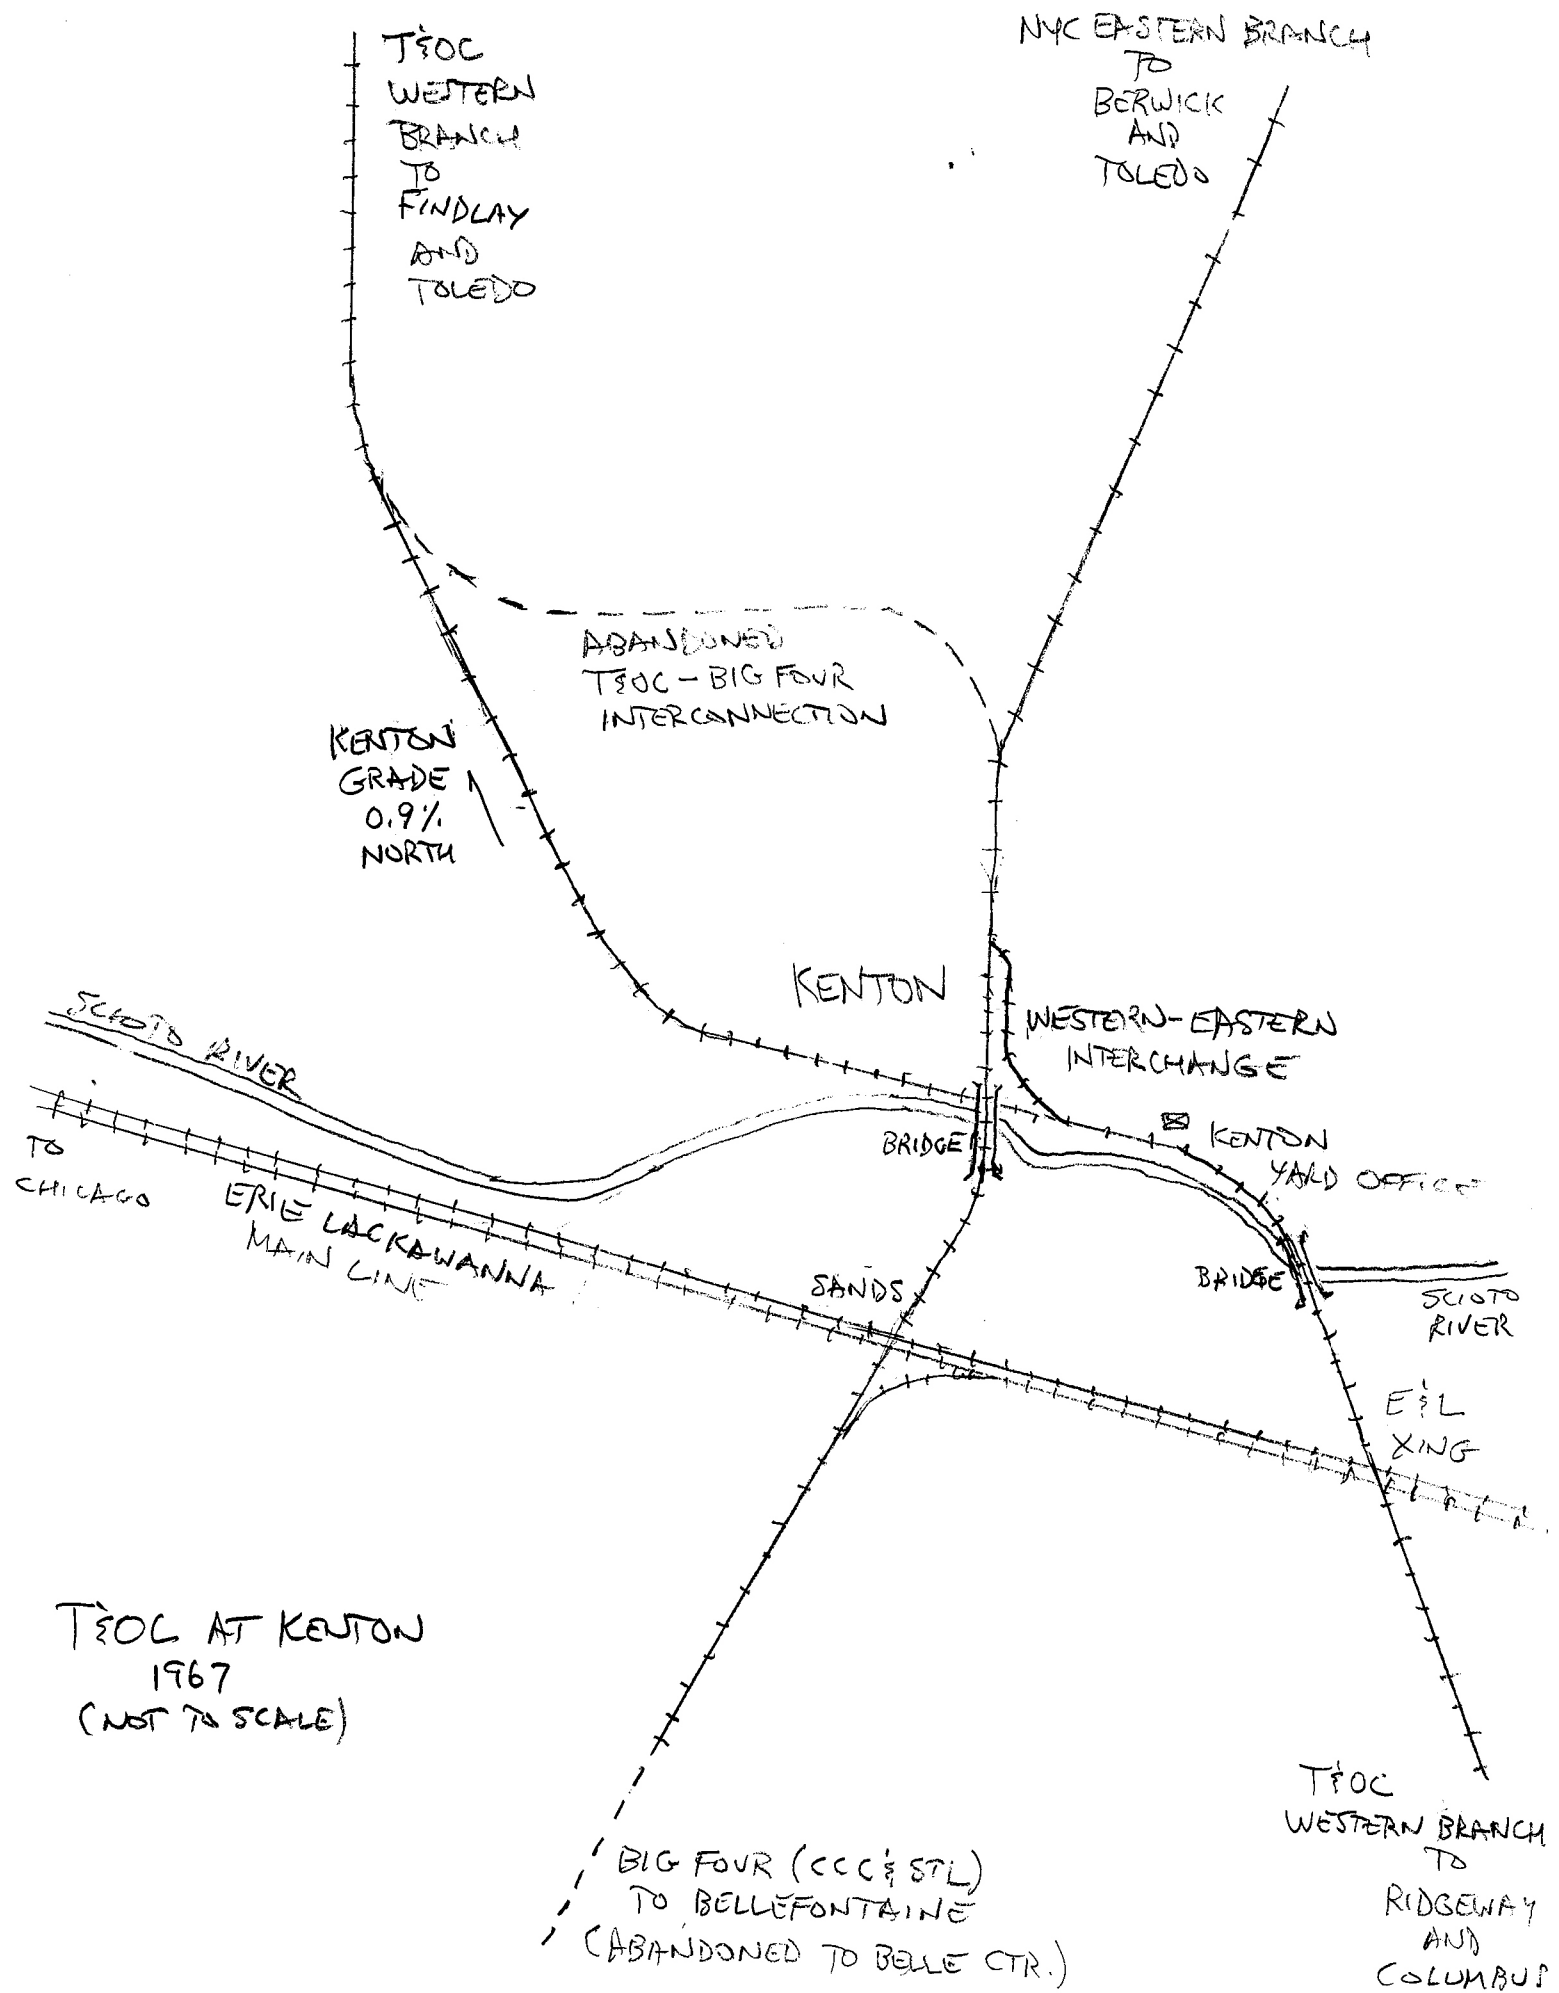 T&OC
WESTERN
BRANCH
TO
FINDLAY
AND
TOLEDO
NYC EASTERN BRANCH
TO
BERWICK
AND
TOLEDO
ABANDONED
T&OC-BIG FOUR
INTERCONNECTION
KENTON
GRADE
0.9%
NORTH
KENTON
WESTERN-EASTERN
INTERCHANGE
SCIOTO RIVER
BRIDGE
KENTON
YARD OFFICE
TO
CHICAGO
ERIE LACKAWANNA
MAIN LINE
SANDS
BRIDGE
SCIOTO
RIVER
E&L
XING
T&OC AT KENTON
1967
(NOT TO SCALE)
BIG FOUR (CCC&STL)
TO BELLEFONTAINE
(ABANDONED TO BELLE CTR.)
T&OC
WESTERN BRANCH
TO
RIDGEWAY
AND
COLUMBUS